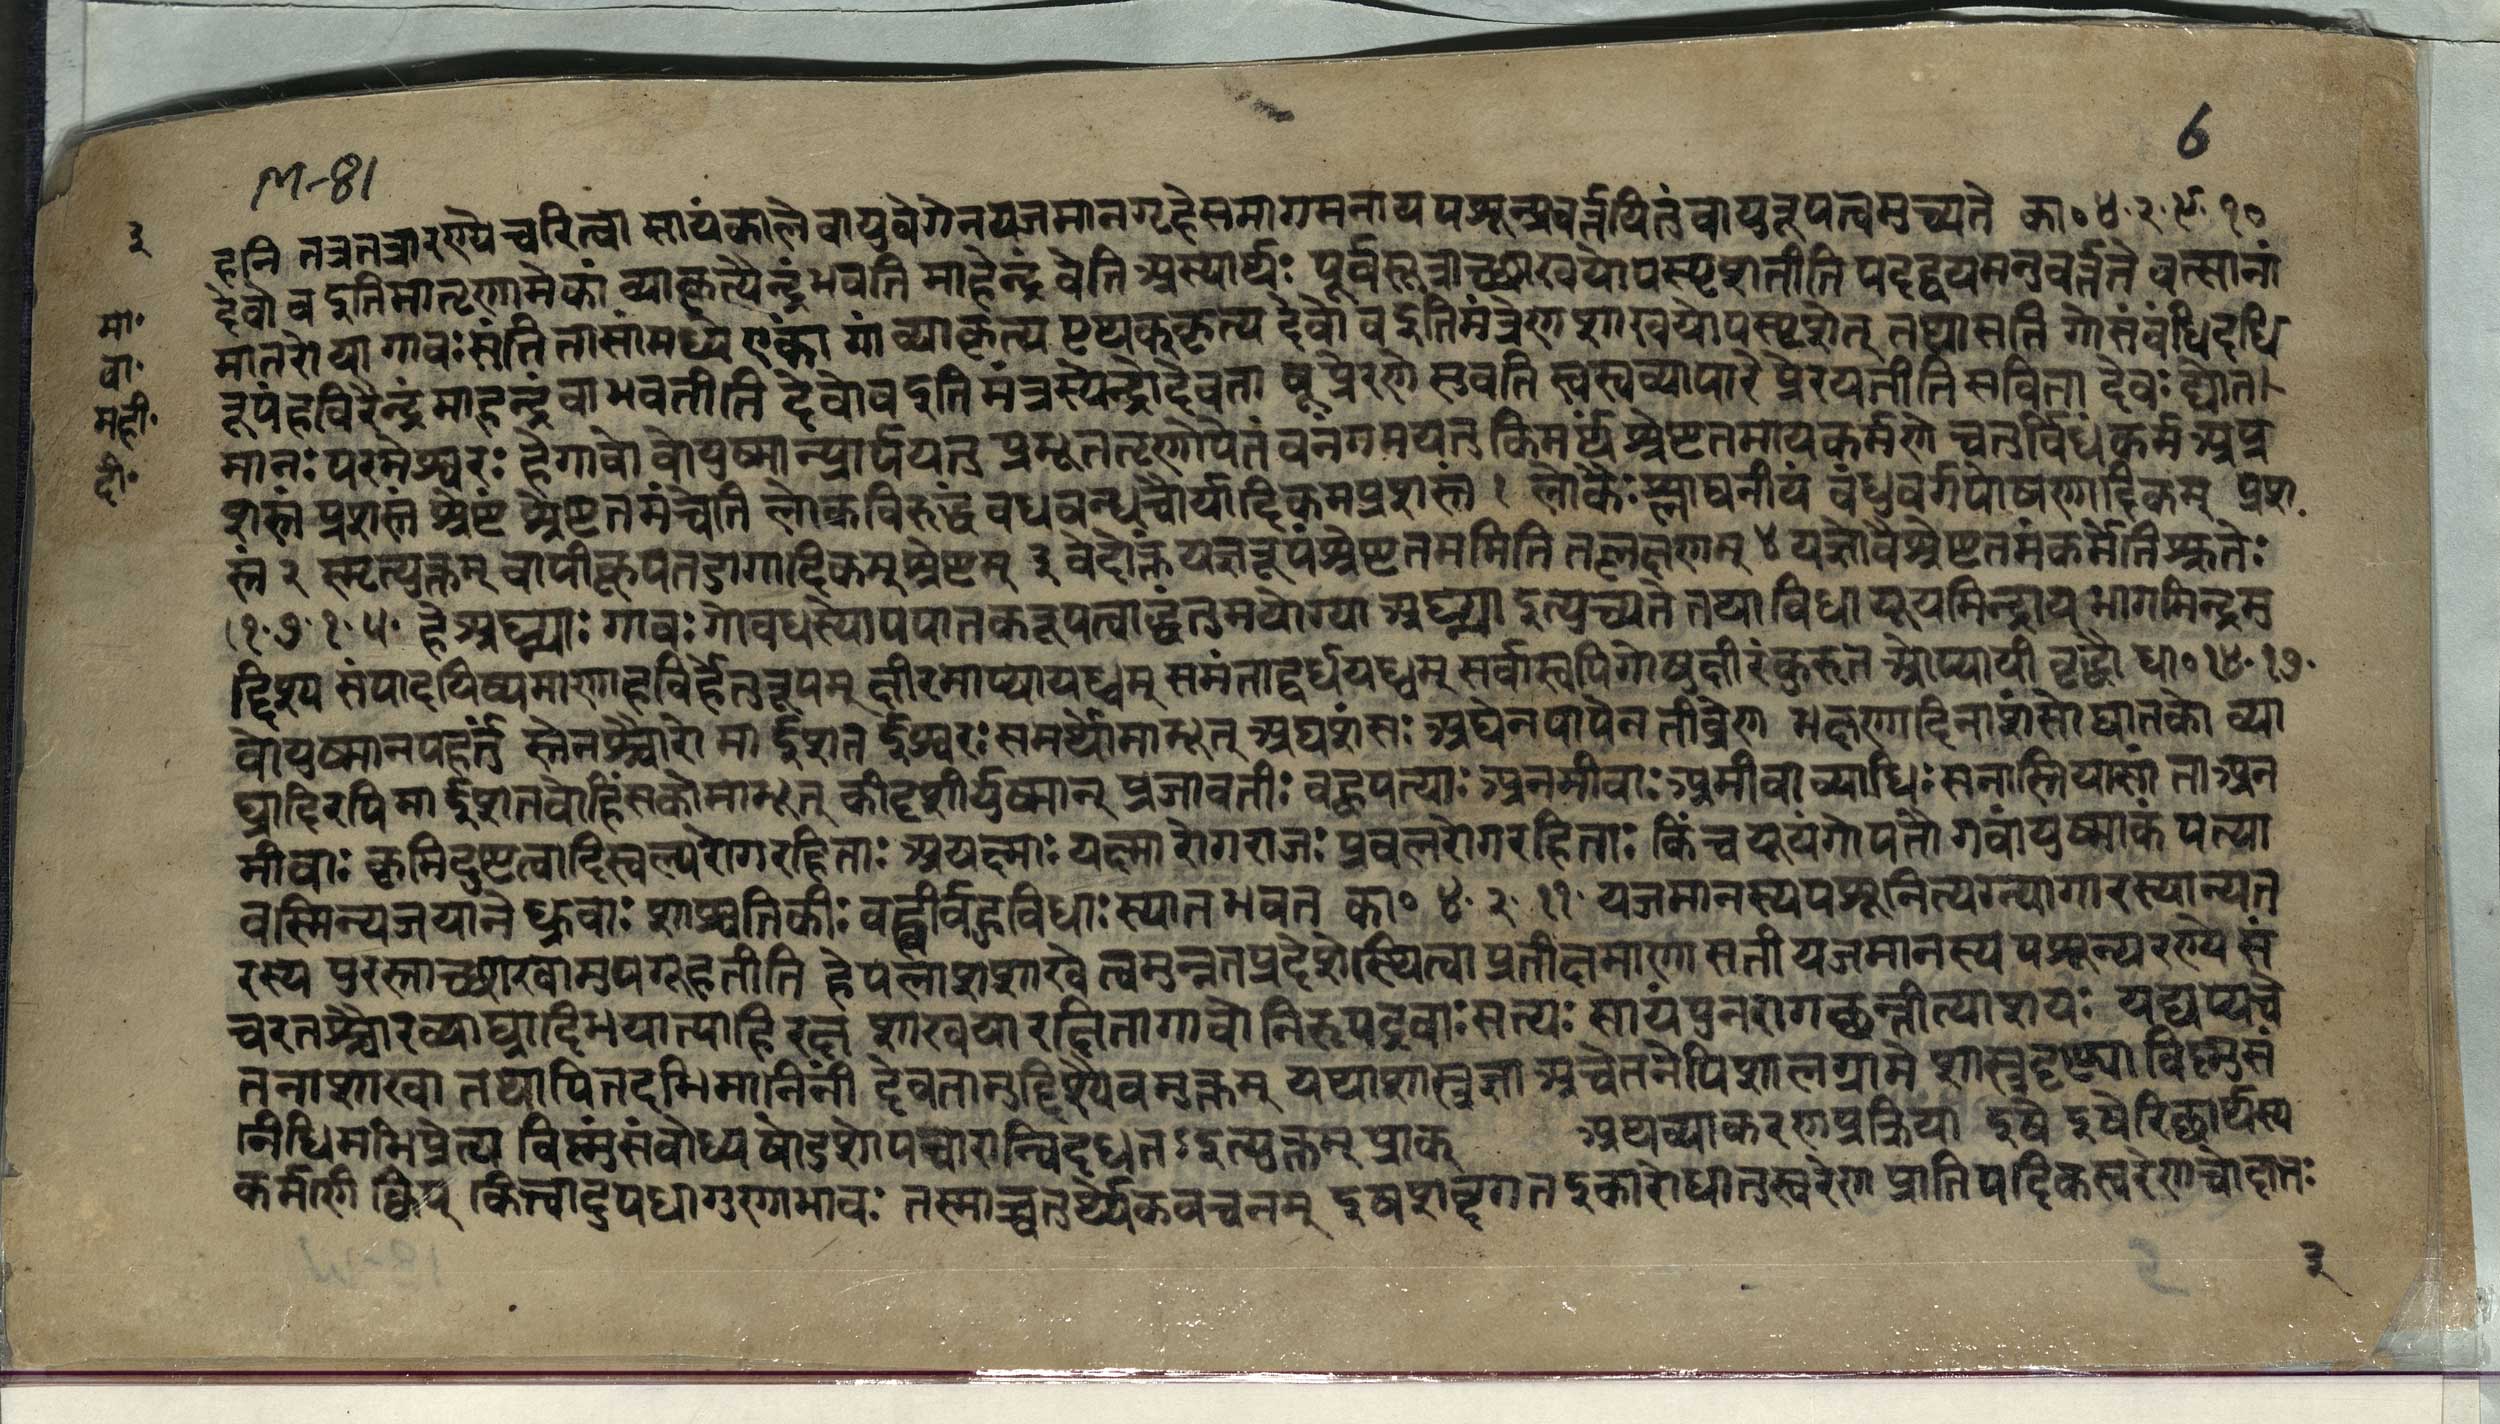 M-81
6
३
मा॰
वा॰
मही॰
दी॰
हनि तत्रतत्रारण्ये चरित्वा सायंकाले वायुवेगेनयजमानगृहेसमागमनाय पशून्प्रवर्त्तयितुं वायुरूपत्वमुच्यते का॰ ४.२.९.१०
देवो व इतिमातॄणामेकां व्याकृत्यैन्द्रं भवति माहेन्द्रं वेति अस्यार्थः पूर्वसूत्राच्छाखयोपस्पृशतीति पदद्वयमनुवर्त्तते वत्सानां
मातरो या गावः संति तासांमध्ये एकां गां व्याकृत्य पृथक्कृत्य देवो व इतिमंत्रेण शाखयोपस्पृशेत् तथासति गोसंबंधिदधि
रूपंहविरैन्द्रं माहेन्द्रं वा भवतीति देवोवइति मंत्रस्येन्द्रोदेवता षू प्रेरणे सुवति स्वस्वव्यापारे प्रेरयतीति सविता देवः द्योत
मानः परमेश्वरः हेगावो वोयुष्मान्प्रार्पयतु प्रभूततृणोपेतं वनंगमयतु किमर्थं श्रेष्टतमायकर्मणे चतुर्विधंकर्म अप्र
शस्तं प्रशस्तं श्रेष्टं श्रेष्टतमंचेति लोकविरुद्धं वधबन्धचौर्यादिकमप्रशस्तं १ लोकैः श्लाघनीयं बंधुवर्गपोषणादिकम् प्रश
स्तं २ स्मृत्युक्तम् वापीकूपतडागादिकम् श्रेष्टम् ३ वेदोक्तं यज्ञरूपंश्रेष्टतममिति तल्लक्षणम् ४ यज्ञोवैश्रेष्टतमंकर्मेतिश्रुतेः
(१.७.१.५. हे अघ्न्याः गावः गोवधस्योपपातकरूपत्वाद्धंतुमयोग्या अघ्न्या इत्युच्यते तथाविधा यूयमिन्द्राय भागमिन्द्रमु
द्दिश्य संपादयिष्यमाणहविर्हेतुरूपम् क्षीरमाप्यायध्वम् समंताद्वर्धयध्वम् सर्वास्वपिगोषुक्षीरंकुरुत ओप्यायी वृद्धौ धा॰ १४.१७.
वोयुष्मानपहर्तुं स्तेनश्चौरो मा ईशत ईश्वरः समर्थोमाभूत् अघशंसः अघेनपापेन तीव्रेण भक्षणादिनाशंसो घातको व्या
घ्रादिरपि मा ईशतवोहिंसकोमाभूत् कीदृशीर्युष्मान् प्रजावतीः बह्वपत्याः अनमीवाः अमीवा व्याधिः सनास्तियासां ता अन
मीवाः कृमिदुष्टत्वादिस्वल्परोगरहिताः अयक्ष्माः यक्ष्मा रोगराजः प्रबलरोगरहिताः किंच यूयंगोपतौ गवांयुष्माकं पत्या
वस्मिन्यजमाने ध्रुवाः शाश्वतिकीः बह्वीर्बहुविधाः स्यात भवत का॰ ४.२.११. यजमानस्यपशूनित्यग्न्यागारस्यान्यत
रस्य पुरस्ताच्छाखामुपगूहतीति हेपलाशशाखे त्वमुन्नतप्रदेशेस्थित्वा प्रतीक्षमाणा सती यजमानस्य पशून्परण्ये सं
चरतश्चौरव्याघ्रादिभयात्पाहि रक्ष शाखयारक्षितागावो निरुपद्रवाः सत्यः सायंपुनरागच्छन्तीत्याशयः यद्यप्यचे
तनाशाखा तथापितदभिमानिनीं देवतामुद्दिश्यैवमुक्तम् यथाशास्त्रज्ञा अचेतनेपिशालग्रामे शास्त्रदृष्ट्या विष्णुसं
निधिमभिप्रेत्य विष्णुंसंबोध्य षोडशोपचारान्विदधत इत्युक्तम् प्राक् अथव्याकरणप्रक्रिया इषे इषेरिच्छार्थस्य
कर्मणि क्विप् कित्वादुपधागुणाभावः तस्माच्चतुर्थ्येकवचनम् इषशब्दगत इकारोधातुस्वरेण प्रातिपदिकस्वरेणचोदात्तः
३